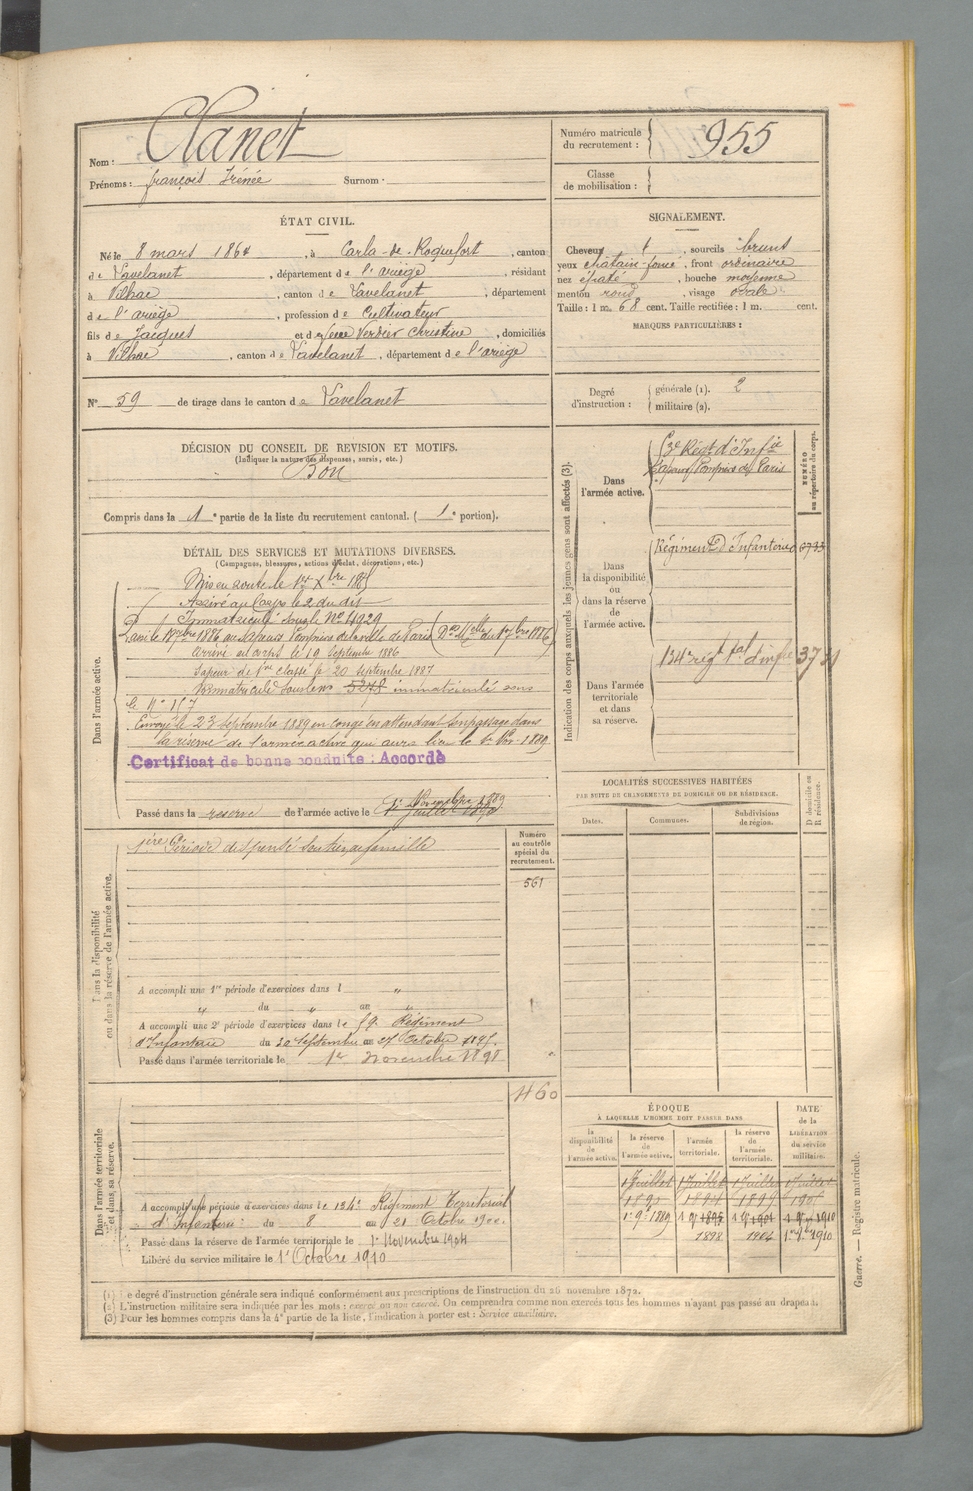 Nom : Clanet
Prénoms : françois Irénée Surnom :
Numéro matricule du recrutement : 955
Classe de mobilisation :
ÉTAT CIVIL.
Né le 8 mars 1864, à Carla-de-Roquefort, canton
de Lavelanet, département de l'ariège, résidant
à Vilhac, canton de Lavelanet, département
de l'ariège, profession de Cultivateur
fils de Jacques et de feue Verdier Christine, domiciliés
à Vilhac, canton de Lavelanet, département de l'ariège
N° 59 de tirage dans le canton de Lavelanet
SIGNALEMENT.
Cheveux et, sourcils bruns
yeux châtain-foncé, front ordinaire
nez épaté, bouche moyenne
menton rond, visage ovale
Taille : 1 m. 68 cent. Taille rectifiée : 1 m. cent.
MARQUES PARTICULIÈRES :
Degré d'instruction : générale (1). 2
militaire (2).
DÉCISION DU CONSEIL DE REVISION ET MOTIFS.
(Indiquer la nature des dispenses, sursis, etc.)
Bon
Compris dans la 1e partie de la liste du recrutement cantonal. (1e portion).
DÉTAIL DES SERVICES ET MUTATIONS DIVERSES.
(Campagnes, blessures, actions d'éclat, décorations, etc.)
Dans l'armée active.
Mis en route le 1er Xbre 1885
Arrivé au Corps le 2 du dit
Immatriculé sous le N° 4929
1886 au Sapeurs Pompiers de la ville de Paris
Arrivé au corps le 19 Septembre 1886
Sapeur de 1re classe le 20 septembre 1887
Immatriculé sous le N° 5248 immatriculé sous
le N° 157
Envoyé le 23 septembre 1889 en congé en attendant son passage dans
la réserve de l'armée active qui aura lieu le 1er 9bre 1889
Certificat de bonne conduite : Accordé
Passé dans la reserve de l'armée active le 1er Novembre 1889
1er Juillet 1890
Dans la disponibilité ou dans la réserve de l'armée active.
1ère Période dispensé soutien de famille
Numéro au contrôle spécial du recrutement.
561
A accompli une 1re période d'exercices dans l "
" du " au "
A accompli une 2e période d'exercices dans le 59e Régiment
d'Infanterie du 30 Septembre au 27 Octobre 1895.
Passé dans l'armée territoriale le 1er novembre 1898
460
Dans l'armée territoriale et dans sa réserve.
A accompli une période d'exercices dans le 134e Régiment Territorial
d'Infanterie du 8 au 21 Octobre 1900.
Passé dans la réserve de l'armée territoriale le 1er Novembre 1904
Libéré du service militaire le 1er Octobre 1910
Indication des corps auxquels les jeunes gens sont affectés (3).
NUMÉRO au répertoire du corps.
Dans l'armée active.
Régt d'Infie
Sapeurs Pompiers de Paris
Dans la disponibilité ou dans la réserve de l'armée active.
Régiment d'Infanterie
Dans l'armée territoriale et dans sa réserve.
134e régt tal d'infie
LOCALITÉS SUCCESSIVES HABITÉES
PAR SUITE DE CHANGEMENTS DE DOMICILE OU DE RÉSIDENCE.
Dates.
Communes.
Subdivisions de région.
D domicile ou R résidence.
ÉPOQUE
À LAQUELLE L'HOMME DOIT PASSER DANS
DATE de la LIBÉRATION du service militaire.
la disponibilité de l'armée active.
la réserve de l'armée active.
l'armée territoriale.
la réserve de l'armée territoriale.
1 Juillet 1 Juillet 1 Juillet 1 Juillet
1890 1899
1er 9bre 1889 1895 1901 1910
1898 1904 1910
(1) Le degré d'instruction générale sera indiqué conformément aux prescriptions de l'instruction du 26 novembre 1872.
(2) L'instruction militaire sera indiquée par les mots : exercé ou non exercé. On comprendra comme non exercés tous les hommes n'ayant pas passé au drapeau.
(3) Pour les hommes compris dans la 4e partie de la liste, l'indication à porter est : Service auxiliaire.
Guerre. — Registre matricule.